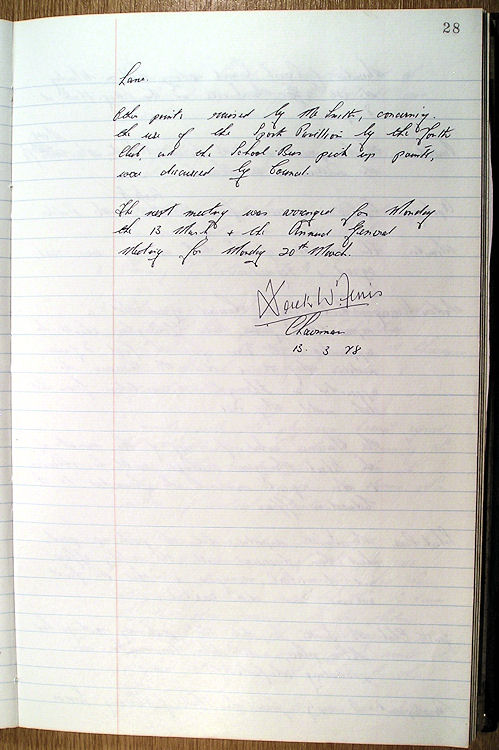 28
Lane.
Other points raised by Mr Smith, concerning
the use of the Sports Pavillion by the Youth
Club, and the School Bus pick up points,
were discussed by Council.
The next meeting was arranged for Monday
the 13 March + the Annual General
Meeting for Monday 20th March.
Derek W.
Chairman
13. 3 78